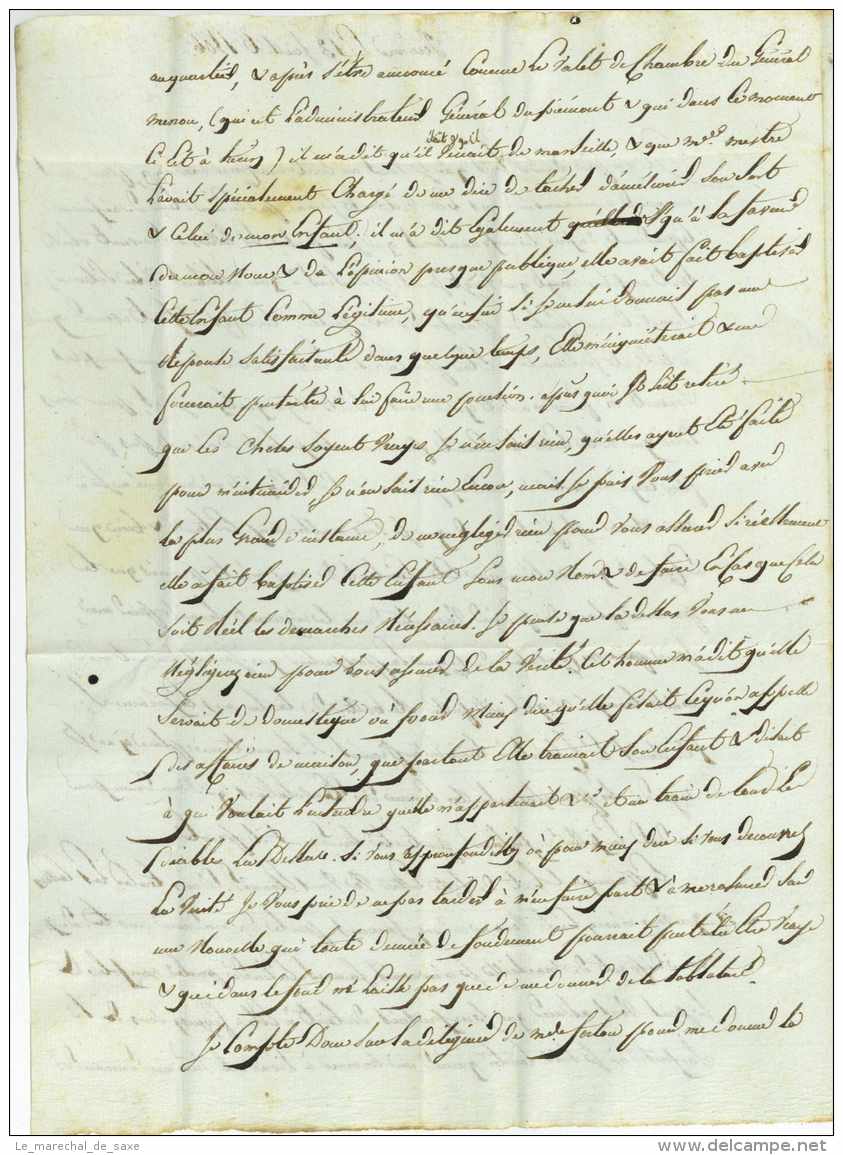 au quartier, & après s'être annoncé comme le valet de Chambre du Général
menou, (qui est L'administrateur Général du piémont & qui dans ce moment
ci est à turin) il m'a dit qu'il venait de marseille, & que m.elle mestre
était qu'il
L'avait spécialement Chargé de me dire de tacher d'améliorer son sort
& celui de mon Enfant; il m'a dit Egalement qu'à la faveur
de mon Nom & de L'opinion presque publique, elle avait fait baptiser
Cette Enfant Comme Légitime, qu'enfin si je ne lui donnais pas une
Réponse satisfaisante dans quelque temps, Elle m'inquiéterait & me
forcerait peutêtre à lui faire une pension. après quoi Il s'est retiré.
que les Choses soyent Vrayes Je n'en sait rien, qu'elles ayent Eté faite
pour m'intimider, Je n'en sait rien Encor, mais Je puis Vous prier avec
la plus Grande instance, de ne négliger rien pour Vous assurer si réellement
elle a fait baptiser Cette Enfant sous mon Nom & de faire En Cas que Cela
soit Réel les demarches Nécéssaires. Je pense que la dessus Vous ne
Négligerez rien pour Vous assurer de la Verité. Cet homme m'a dit qu'elle
servait de domestique ou pour mieux dire qu'elle fesait Ce qu'on appelle
des affaires de maison, que partout Elle trainait son Enfant & disait
à qui Voulait L'entendre qu'elle m'appartenait &c. et un train de tous les
diable La Dessus. Si Vous approfondissez ou pour mieux dire si Vous decouvrez
La Verité Je Vous prie de ne pas tarder à m'en faire part & à me rassurer sur
une Nouvelle qui toute denuée de fondement pourrait peut être Etre Vraye
& qui dans le fond ne Laisse pas que de me donner de la tablature.
Je Compte Donc sur la diligence de m.de fortou pour me donner le
Le_marechal_de_saxe
www.delcampe.net